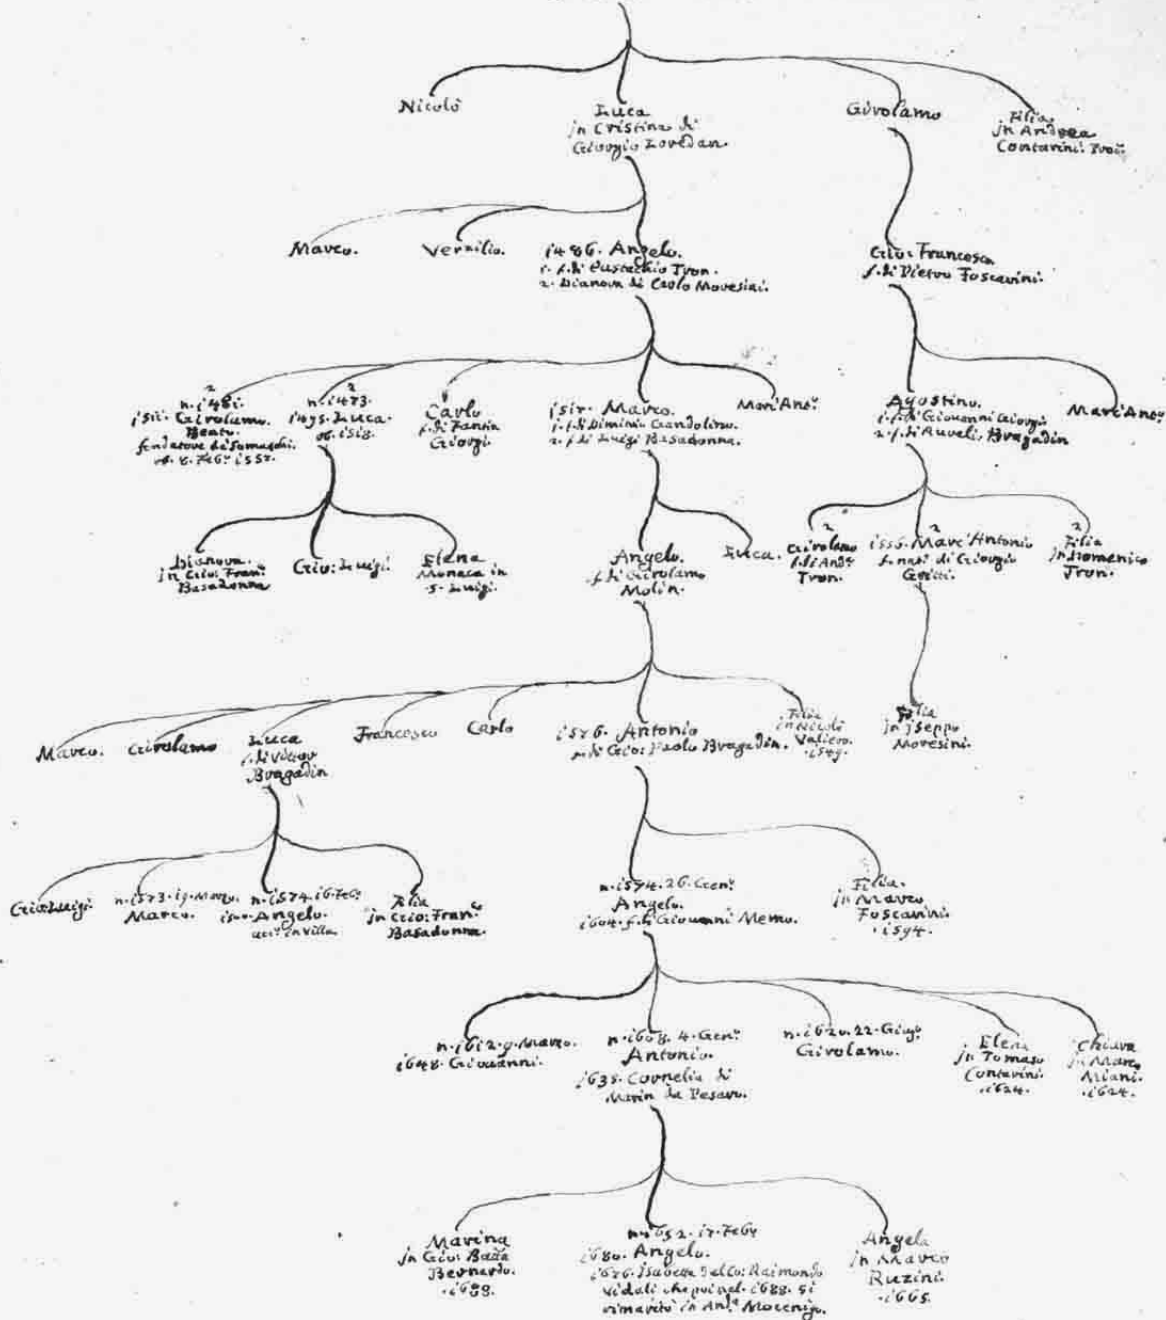 Nicolò
Luca
jn Cristina di
Giorgio Loredan.
Girolamo
Filia
jn Andrea
Contarini. Proc.
Marco.
Versilio.
1486. Angelo.
1. f. di Eustachio Tron.
2. Dianora di Carlo Moresini.
Gio: Francesco
f. di Pietro Foscarini.
2
n. 1481.
1511. Girolamo.
Beato
fondatore de Somaschi.
ob. 8. Feb.º 1537.
2
n. 1473.
1495. Luca.
ob. 1519.
Carlo
f. di Fantin
Giorgi.
Marco.
1. f. di Dimitri Gandolino.
2. f. di Luigi Basadonna.
Marc'Ant.º
Agostino.
1. f. di Giovanni Giorgio
2. f. di Aureli. Bragadin
Marc'Ant.º
Dianora.
jn Gio: Fran.º
Basadonna
Gio: Luigi.
Elena
Monaca in
S. Luigi.
Angelo.
f. di Girolamo
Molin.
Luca.
2
Girolamo
f. di And.ª
Tron.
2
1556. Marc'Antonio
f. nat. di Giorgio
Gritti.
2
Filia
jn Domenico
Tron.
Marco.
Girolamo
Luca
f. di Vittor
Bragadin
Francesco
Carlo
1576. Antonio
f. di Gio: Paolo Bragadin.
Filia
jn Nicolò
Valiero.
Filia
jn jseppo
Moresini.
Gio: Luigi.
n. 1573. 19. Marzo.
Marco.
n. 1574. 16. Feb.º
Angelo.
in Villa
Filia
jn Gio: Fran.º
Basadonna.
n. 1574. 26. Gen.º
Angelo.
1604. f. di Giovanni Memo.
Filia.
jn Marco
Foscarini
. 1594.
n. 1612. 9. Marzo.
1648. Giovanni.
n. 1608. 4. Gen.º
Antonio.
1635. Cornelia di
Marin da Pesaro.
n. 1620. 22. Giug.º
Girolamo.
Elena
jn Tomaso
Contarini.
. 1624.
Chiara
jn Marco
Miani.
. 1624.
Marina
jn Gio: Batta
Bernardo.
. 1688.
n. 1652. 17. Feb.º
1680. Angelo.
1676. Isabetta del Co: Raimondo
Vidali che poi nel. 1688. si
rimaritò in And.ª Mocenigo.
Angela
jn Marco
Ruzini.
. 1665.